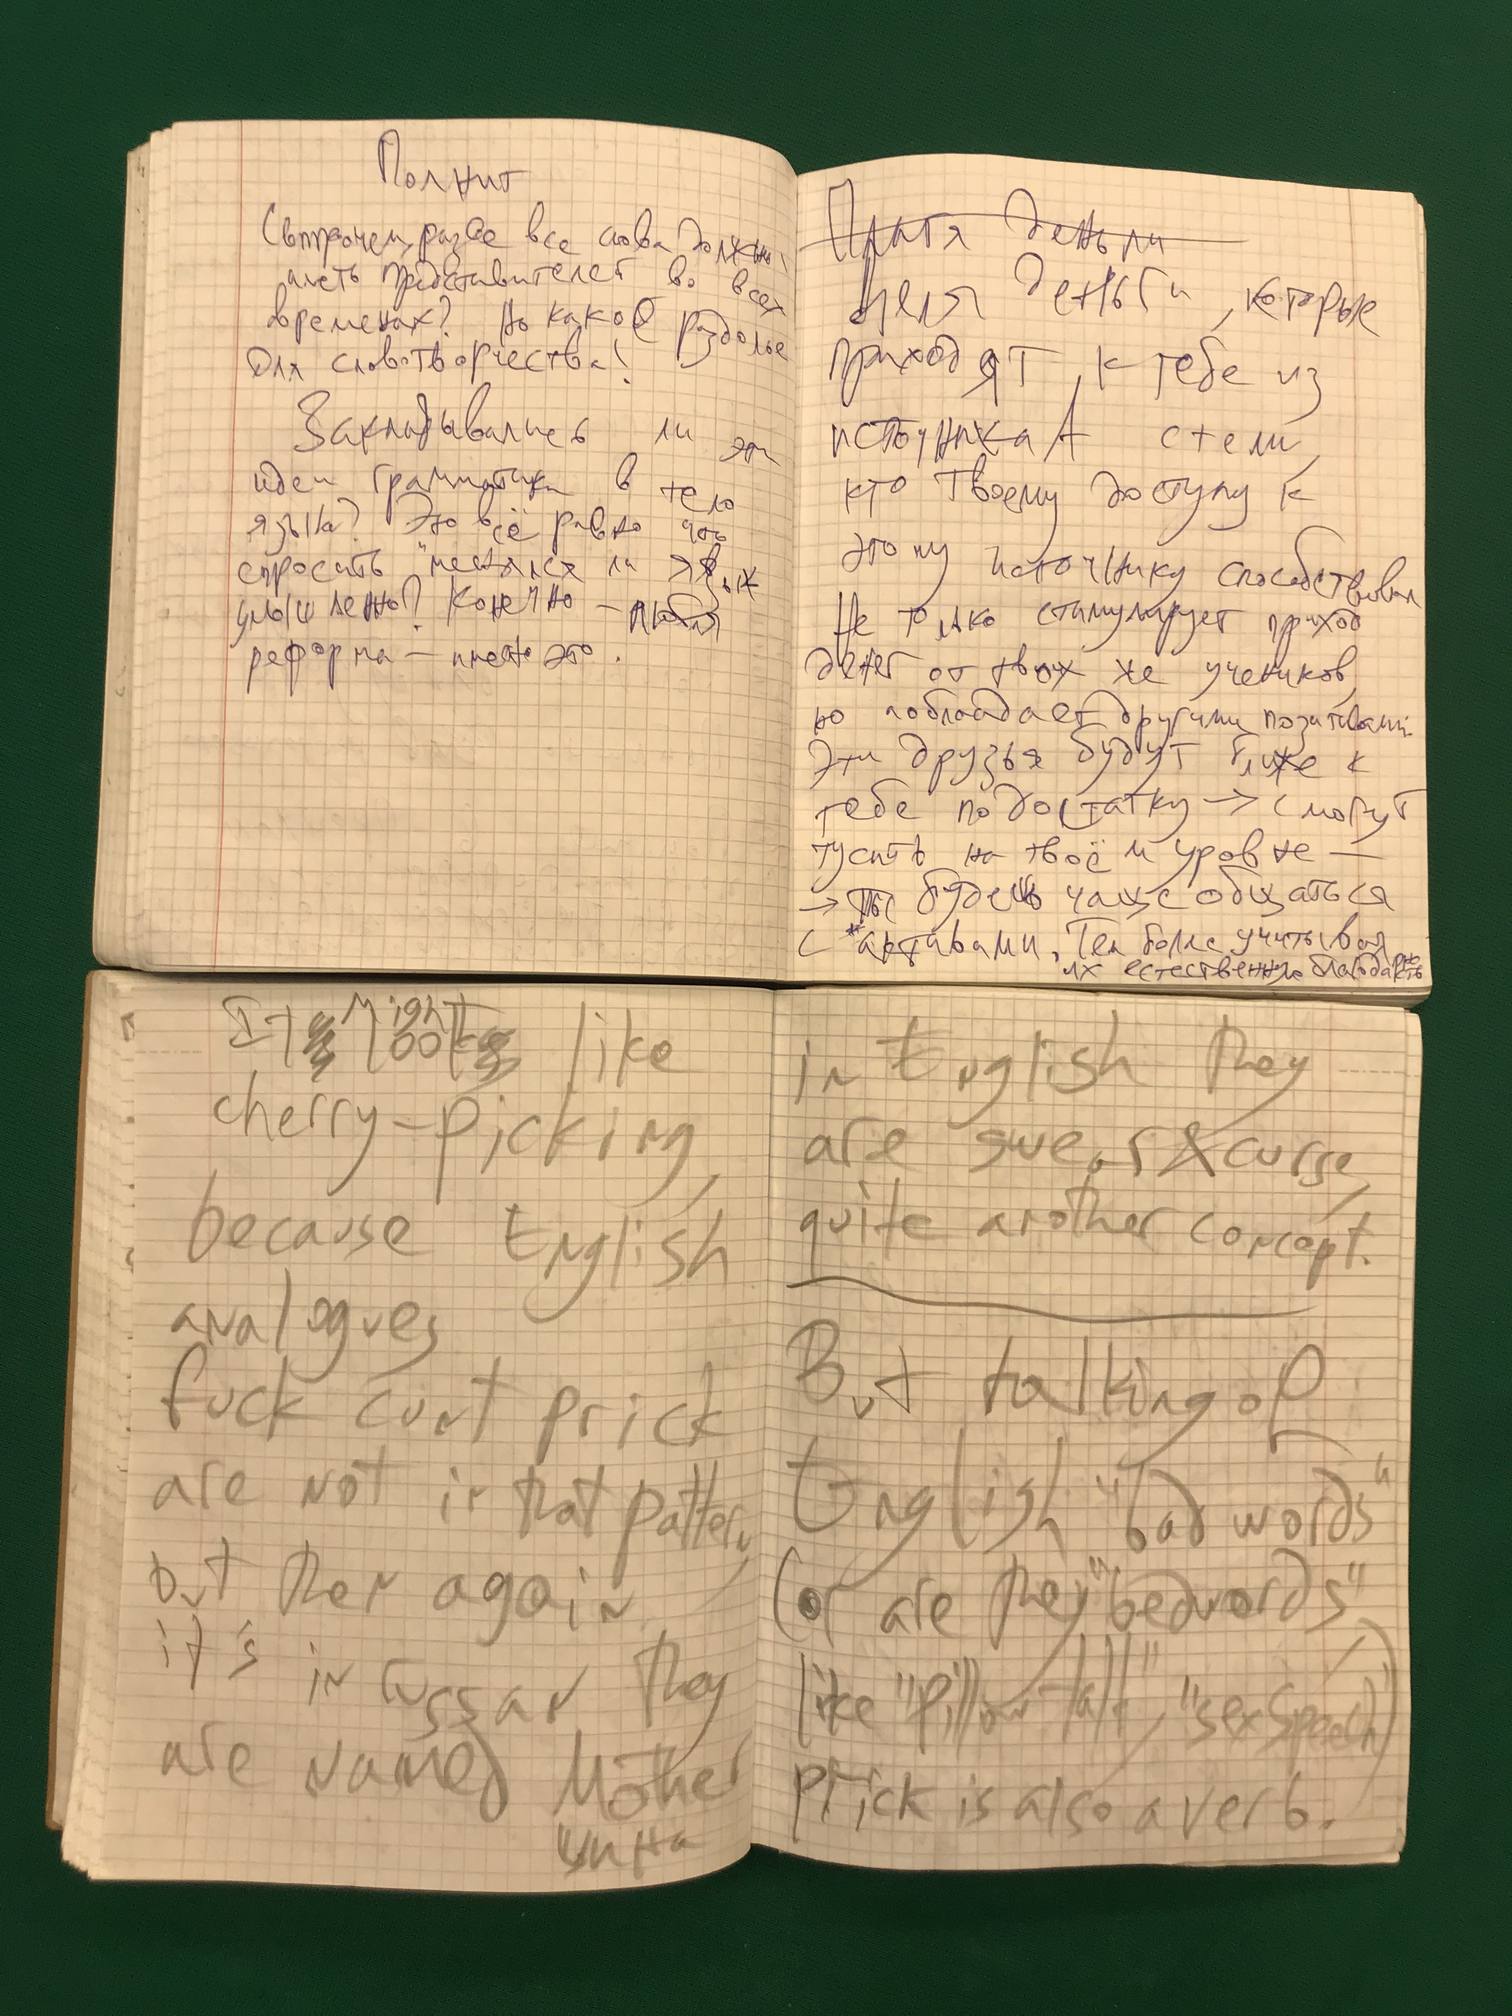 Полнит
(впрочем, разве все слова должны
иметь представителей во всех
временах? Но какое раздолье
для словотворчества!
Закладывались ли эти
идеи грамматики в тело
языка? Это всё равно что
спросить "менялся ли язык
умышленно? Конечно – любая
реформа – именно это.
Платя деньги
Деля деньги, которые
приходят к тебе из
источника А с теми,
кто твоему доступу к
этому источнику способствовал
Не только стимулирует приход
денег от твоих же учеников,
но и обладает другими позитивами.
Эти друзья будут ближе к
тебе по достатку → смогут
тусить на твоём уровне —
→ ты будешь чаще общаться
с "активами. Тем более учитывая
их естественную благодарность
It might look like
cherry-picking,
because English
analogues
fuck cunt prick
are not in that pattern,
but then again
it's in russian they
are named Mother
щина
in English they
are swear & curse,
quite another concept.
But talking of
English "bad words"
(or are they "bedwords"
like "pillow talk", "sexspeech")
Prick is also a verb.